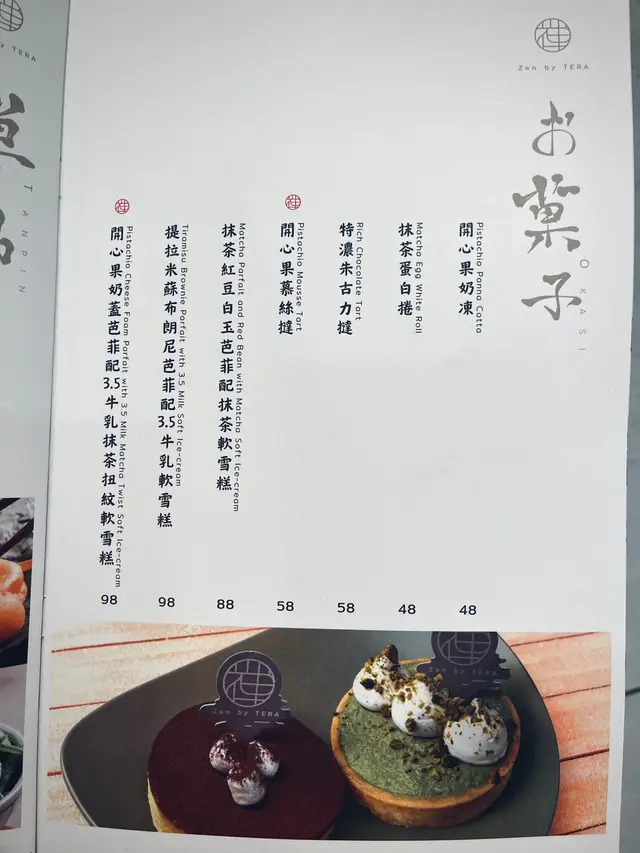 禪
Zen by TERA
お菓子
OKASI
開心果奶凍
Pistachio Panna Cotta
48
抹茶蛋白捲
Matcha Egg White Roll
48
特濃朱古力撻
Rich Chocolate Tart
58
禪
開心果慕絲撻
Pistachio Mousse Tart
58
抹茶紅豆白玉芭菲配抹茶軟雪糕
Matcha Parfait and Red Bean with Matcha Soft Ice-cream
88
提拉米蘇布朗尼芭菲配3.5牛乳軟雪糕
Tiramisu Brownie Parfait with 3.5 Milk Soft Ice-cream
98
禪
開心果奶蓋芭菲配3.5牛乳抹茶扭紋軟雪糕
Pistachio Cheese Foam Parfait with 3.5 Milk Matcha Twist Soft Ice-cream
98
禪
Zen by TERA
禪
Zen by TERA
by TERA
TANPIN